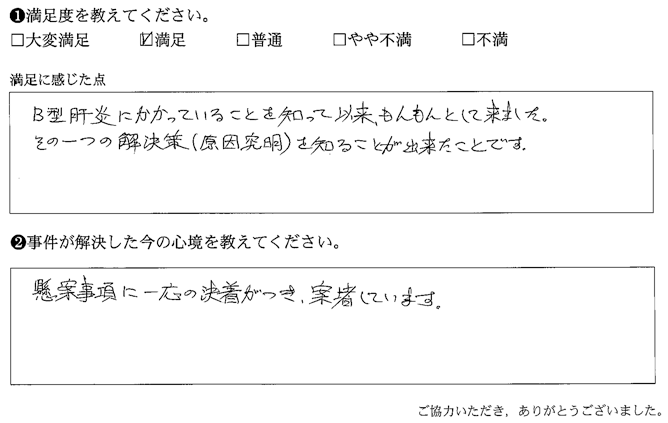 ❶満足度を教えてください。
□大変満足 ☑満足 □普通 □やや不満 □不満
満足に感じた点
B型肝炎にかかっていることを知って以来、もんもんとして来ました。
その一つの解決策(原因究明)を知ることが出来たことです。
❷事件が解決した今の心境を教えてください。
懸案事項に一応の決着がつき、安堵しています。
ご協力いただき，ありがとうございました。